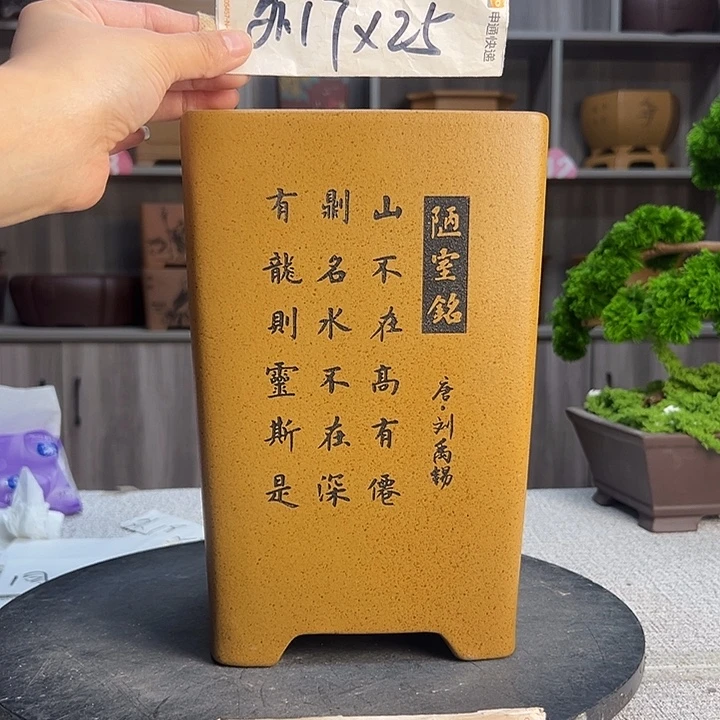 17x25
申通快递
陋室銘
唐·刘禹錫
山不在髙有僊
則名水不在深
有龍則靈斯是